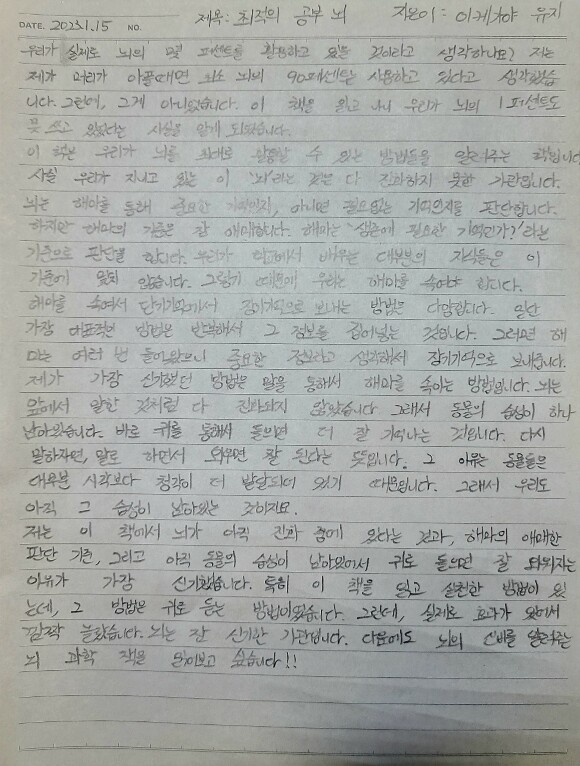 DATE. 2023.1.15 NO. 제목: 최적의 공부 뇌 지은이: 이케가야 유지
우리가 실제로 뇌의 몇 퍼센트를 활용하고 있는 것이라고 생각하나요? 저는
제가 머리가 아플때면 최소 뇌의 90퍼센트는 사용하고 있다고 생각했습
니다. 그런데, 그게 아니었습니다. 이 책을 읽고 나니 우리가 뇌의 1퍼센트도
못 쓰고 있었다는 사실을 알게 되었습니다.
이 책은 우리가 뇌를 최대로 활용할 수 있는 방법들을 알려주는 책입니다
사실 우리가 지니고 있는 이 '뇌'라는 것은 다 진화하지 못한 기관입니다.
뇌는 해마를 통해 중요한 기억인지, 아니면 필요없는 기억인지를 판단합니다.
하지만 해마의 기준은 참 애매합니다. 해마는 '생존에 필요한 기억인가?'라는
기준으로 판단을 합니다. 우리가 학교에서 배우는 대부분의 지식들은 이
기준에 맞지 않습니다. 그렇기 때문에 우리는 해마를 속여야 합니다.
해마를 속여서 단기기억에서 장기기억으로 보내는 방법은 다양합니다. 일단
가장 대표적인 방법은 반복해서 그 정보를 집어넣는 것입니다. 그러면 해
마는 여러 번 들어왔으니 중요한 정보라고 생각해서 장기기억으로 보내줍니다.
제가 가장 신기했던 방법은 말을 통해서 해마를 속이는 방법입니다. 뇌는
앞에서 말한 것처럼 다 진화되지 않았습니다 그래서 동물의 습성이 하나
남아있습니다. 바로 귀를 통해서 들으면 더 잘 기억나는 것입니다. 다시
말하자면, 말로 하면서 외우면 잘 된다는 뜻입니다. 그 이유는 동물들은
대부분 시각보다 청각이 더 발달되어 있기 때문입니다. 그래서 우리도
아직 그 습성이 남아있는 것이지요.
저는 이 책에서 뇌가 아직 진화 중에 있다는 것과, 해마의 애매한
판단 기준, 그리고 아직 동물의 습성이 남아있어서 귀로 들으면 잘 외워지는
이유가 가장 신기했습니다. 특히 이 책을 읽고 실천한 방법이 있
는데, 그 방법은 귀로 듣는 방법이었습니다. 그런데, 실제로 효과가 있어서
깜짝 놀랐습니다. 뇌는 참 신기한 기관입니다. 다음에도 뇌의 신비를 알려주는
뇌 과학 책을 읽어보고 싶습니다!!